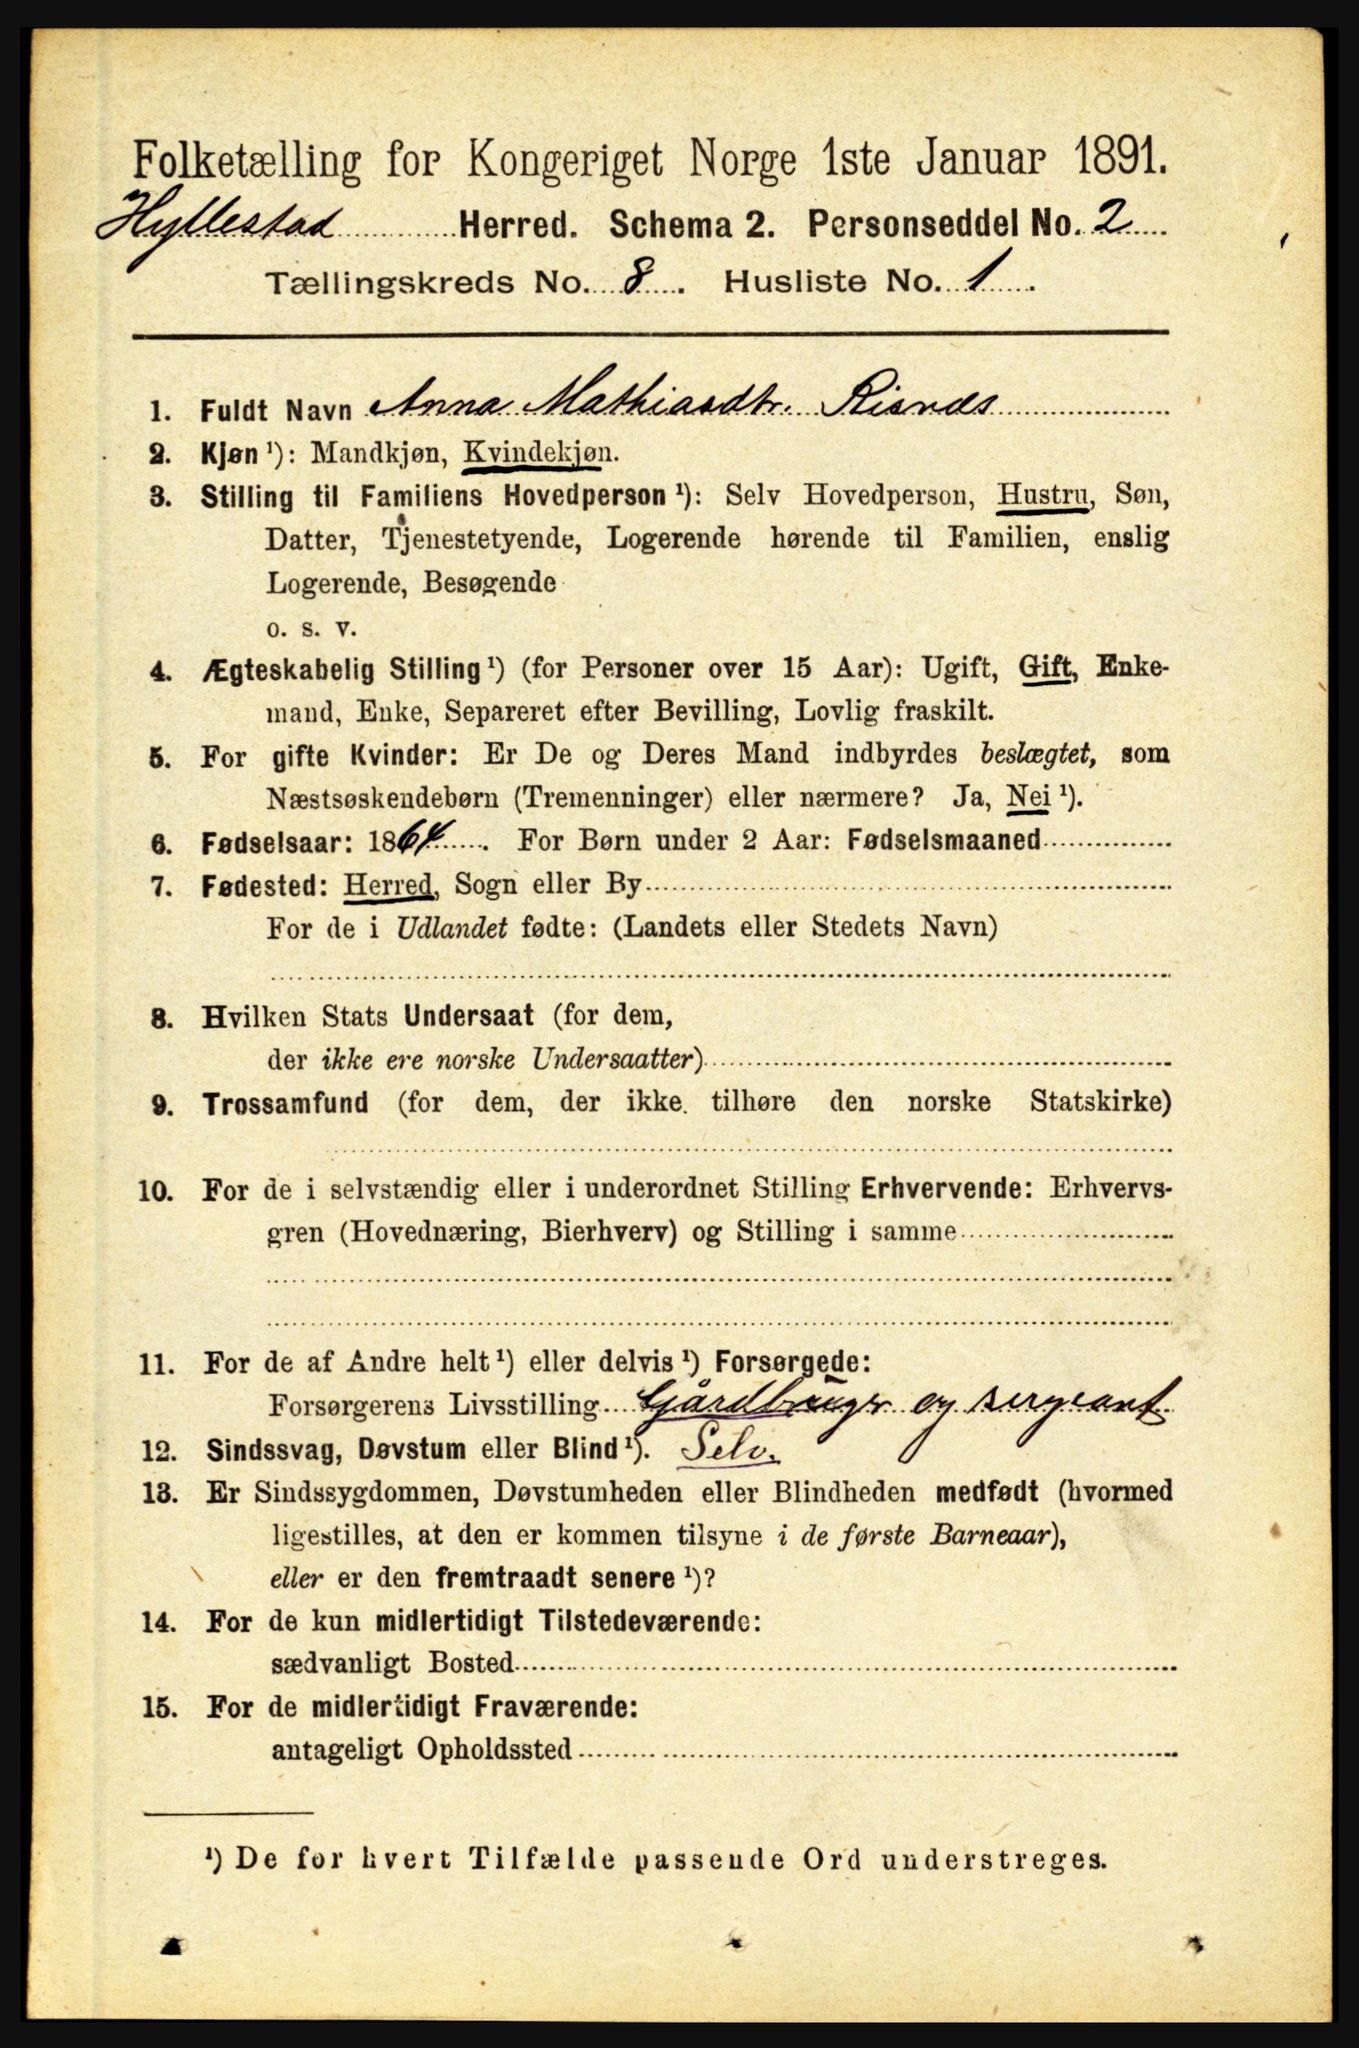 Folketælling for Kongeriget Norge 1ste Januar 1891.
Hyllestad Herred. Schema 2. Personseddel No. 2
Tællingskreds No. 8. Husliste No. 1.
1. Fuldt Navn Anna Mathiasdtr. Risnæs
2. Kjøn ¹): Mandkjøn, Kvindekjøn.
3. Stilling til Familiens Hovedperson ¹): Selv Hovedperson, Hustru, Søn,
Datter, Tjenestetyende, Logerende hørende til Familien, enslig
Logerende, Besøgende
o. s. v.
4. Ægteskabelig Stilling ¹) (for Personer over 15 Aar): Ugift, Gift, Enke-
mand, Enke, Separeret efter Bevilling, Lovlig fraskilt.
5. For gifte Kvinder: Er De og Deres Mand indbyrdes beslægtet, som
Næstsøskendebørn (Tremenninger) eller nærmere? Ja, Nei ¹).
6. Fødselsaar: 1864. For Børn under 2 Aar: Fødselsmaaned
7. Fødested: Herred, Sogn eller By
For de i Udlandet fødte: (Landets eller Stedets Navn)
8. Hvilken Stats Undersaat (for dem,
der ikke ere norske Undersaatter)
9. Trossamfund (for dem, der ikke tilhøre den norske Statskirke)
10. For de i selvstændig eller i underordnet Stilling Erhvervende: Erhvervs-
gren (Hovednæring, Bierhverv) og Stilling i samme
11. For de af Andre helt ¹) eller delvis ¹) Forsørgede:
Forsørgerens Livsstilling Gårdbruger og sergeant
12. Sindssvag, Døvstum eller Blind ¹). Selv.
13. Er Sindssygdommen, Døvstumheden eller Blindheden medfødt (hvormed
ligestilles, at den er kommen tilsyne i de første Barneaar),
eller er den fremtraadt senere ¹)?
14. For de kun midlertidigt Tilstedeværende:
sædvanligt Bosted
15. For de midlertidigt Fraværende:
antageligt Opholdssted
¹) De for hvert Tilfælde passende Ord understreges.